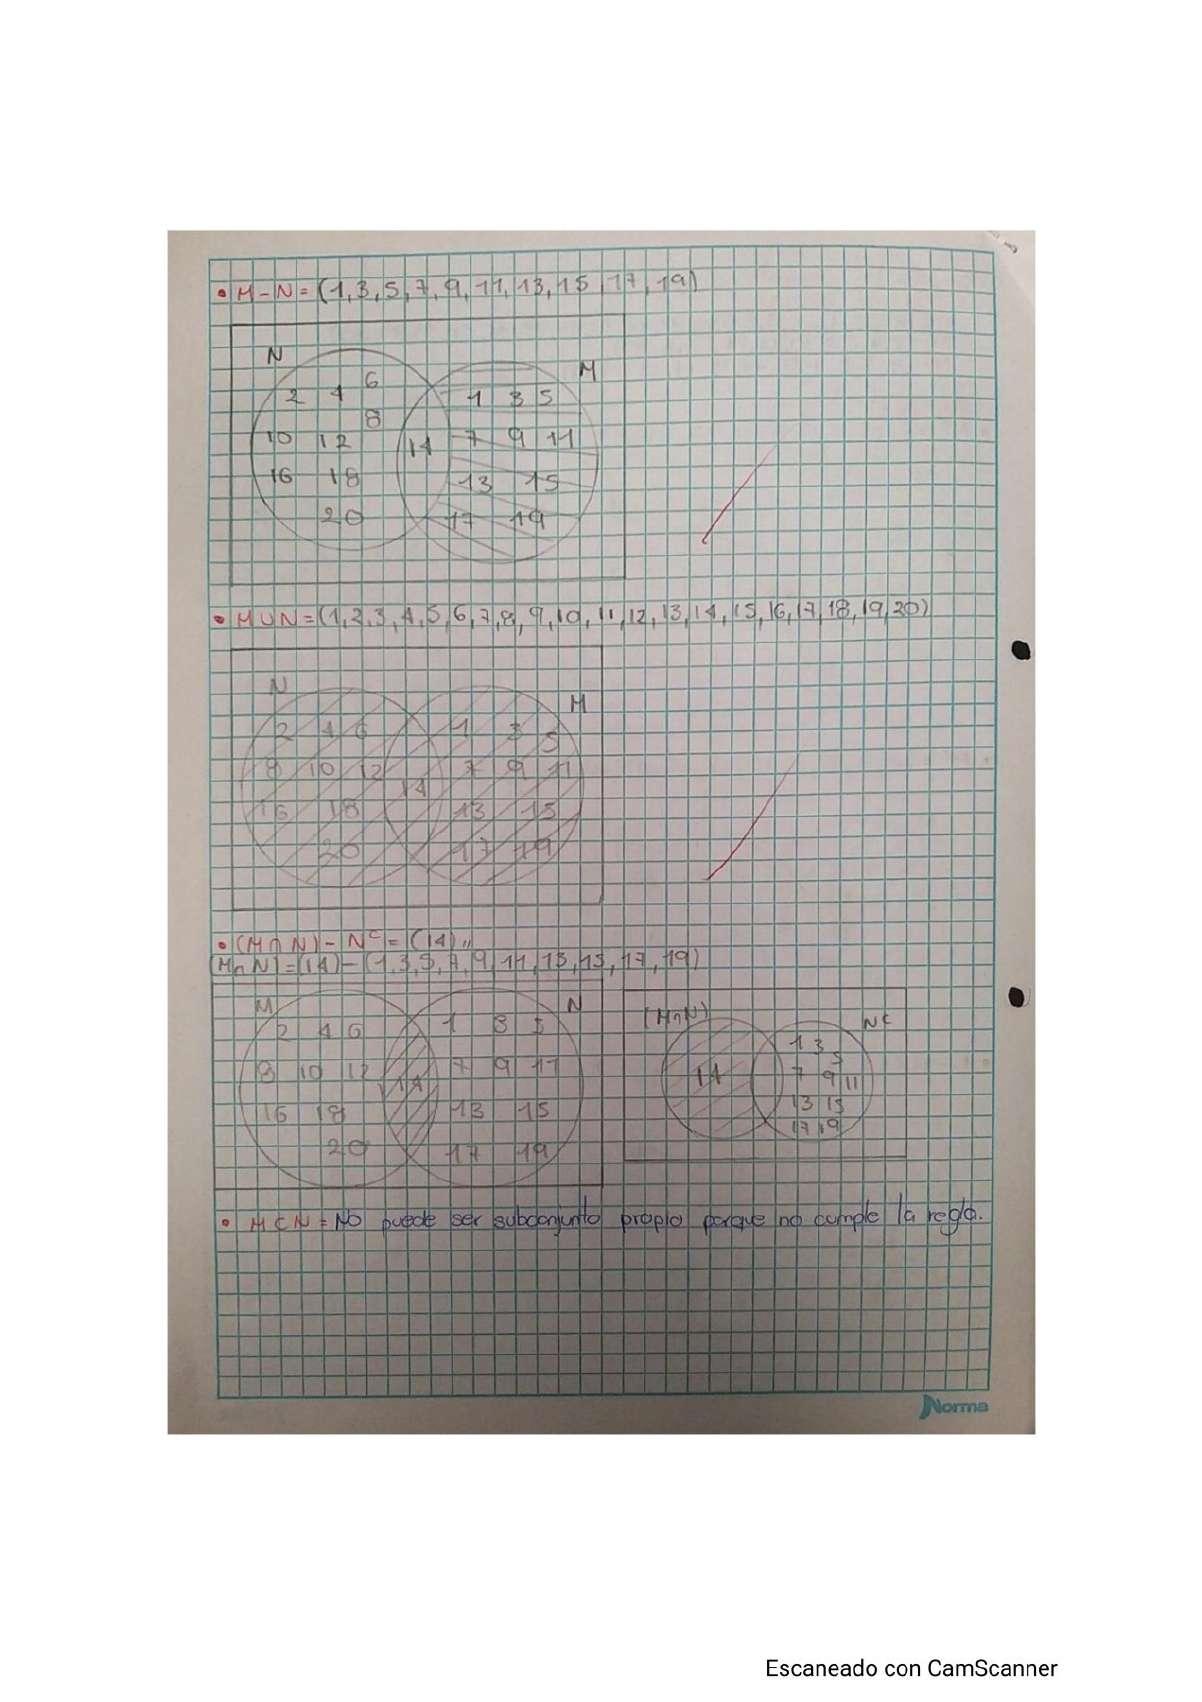 • M-N=(1,3,5,7,9,11,13,15,17,19)
N
M
2 4 6
8
1 3 5
10 12
14
7 9 11
16 18
13 15
20
17 19
• M∪N=(1,2,3,4,5,6,7,8,9,10,11,12,13,14,15,16,17,18,19,20)
N
M
2 4 6
1 3 5
8 10 12
14
7 9 11
16 18
13 15
20
17 19
• (M∩N)-Nᶜ=(14),,
(M∩N)=(14)-(1,3,5,7,9,11,13,15,17,19)
M
N
2 4 6
1 3 5
8 10 12
14
7 9 11
16 18
13 15
20
17 19
(M∩N)
Nᶜ
14
1 3
5
7 9 11
13 15
17 19
• M⊂N=No puede ser subconjunto propio porque no cumple la regla.
Norma
Escaneado con CamScanner